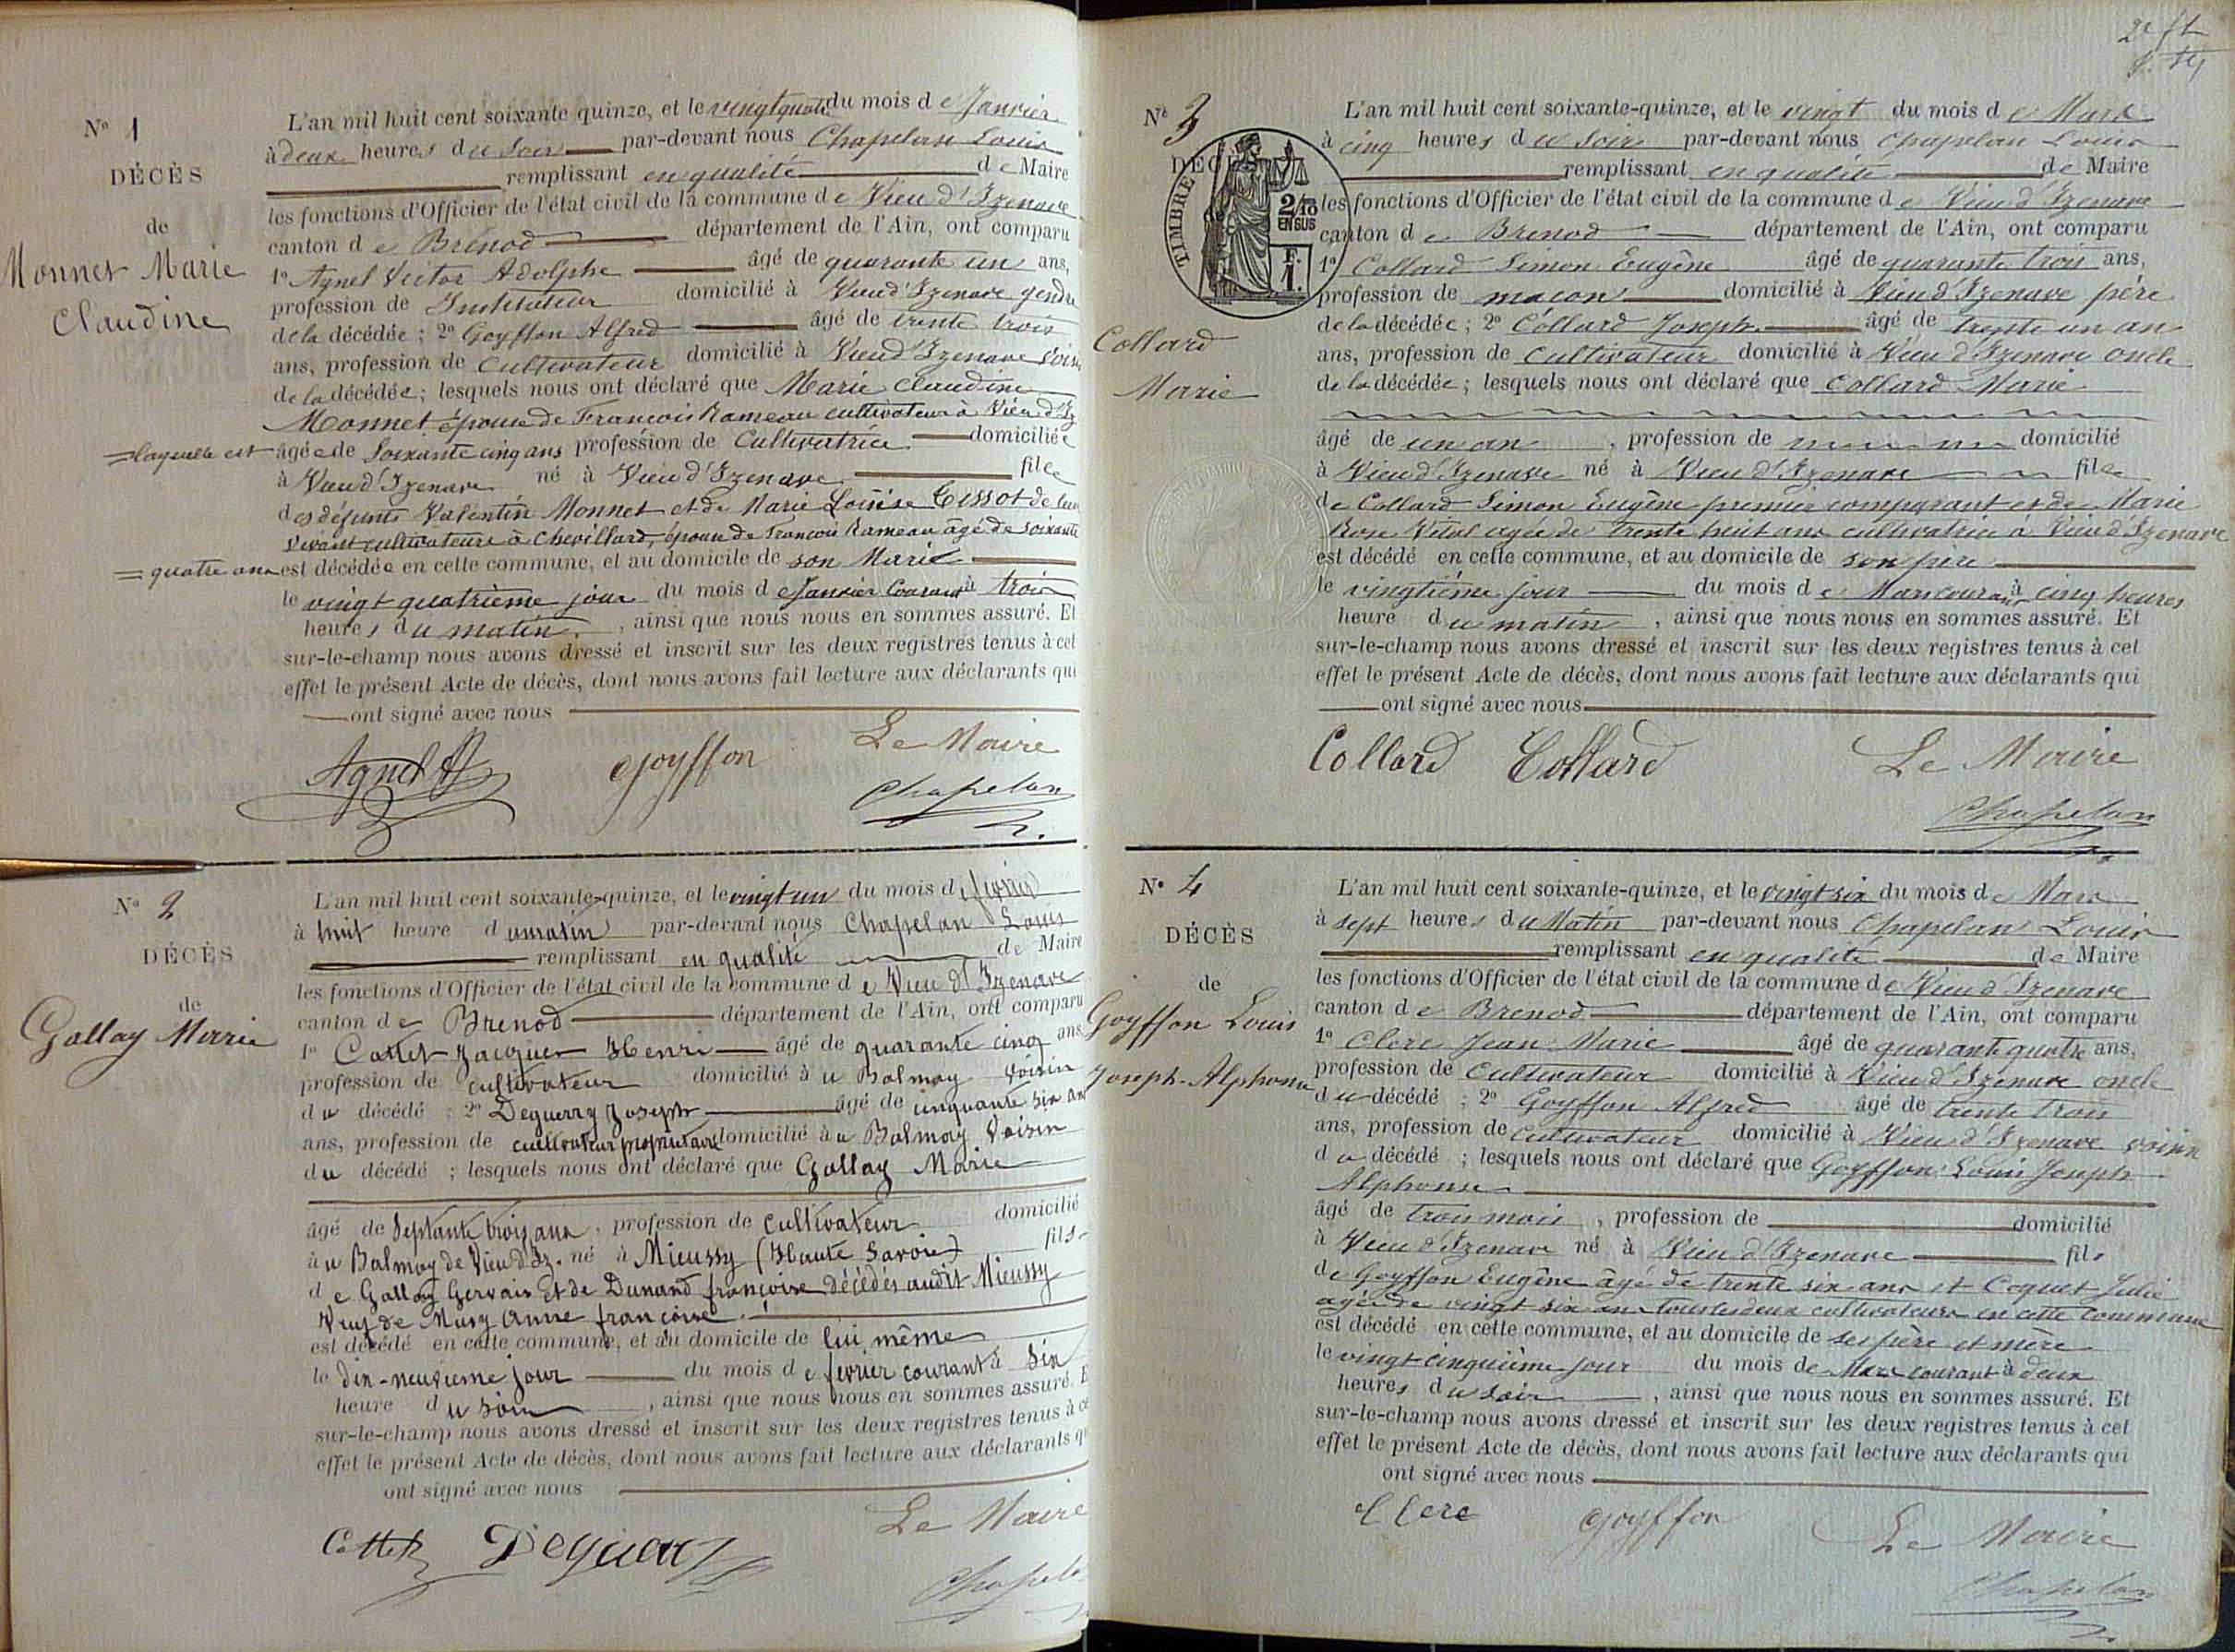 N° 1
DÉCÈS
de
Monnet Marie
Claudine
L'an mil huit cent soixante-quinze, et le vingt quatre du mois de Janvier
à deux heures du Soir par-devant nous Chapelan Louis
remplissant en qualité de Maire
les fonctions d'Officier de l'état civil de la commune de Vieu d'Izenave
canton de Brénod département de l'Ain, ont comparu
1° Agnel Victor Adolphe âgé de quarante un ans,
profession de Instituteur domicilié à Vieu d'Izenave gendre
de la décédée ; 2° Goyffon Alfred âgé de trente trois
ans, profession de Cultivateur domicilié à Vieu d'Izenave voisin
de la décédée ; lesquels nous ont déclaré que Marie Claudine
Monnet épouse de François Rameau cultivateur à Vieu d'Iz
=laquelle est âgée de Soixante cinq ans profession de Cultivatrice domiciliée
à Vieu d'Izenave né à Vieu d'Izenave fille
des défunts Valentin Monnet et de Marie Louise Tissot de leur
vivant cultivateurs à Chevillard, épouse de François Rameau âgé de soixante
= quatre ans est décédée en cette commune, et au domicile de son Marié
le vingt quatrième jour du mois de Janvier Courant à trois
heures du matin, ainsi que nous nous en sommes assuré. Et
sur-le-champ nous avons dressé et inscrit sur les deux registres tenus à cet
effet le présent Acte de décès, dont nous avons fait lecture aux déclarants qui
ont signé avec nous
Agnel Goyffon Le Maire
Chapelan
N° 2
DÉCÈS
de
Gallay Marie
L'an mil huit cent soixante-quinze, et le vingt un du mois de février
à huit heure du matin par-devant nous Chapelan Louis
remplissant en qualité de Maire
les fonctions d'Officier de l'état civil de la commune de Vieu d'Izenave
canton de Brenod département de l'Ain, ont comparu
1° Cottet Jacques Henri âgé de quarante cinq ans,
profession de cultivateur domicilié à u Balmay voisin
du décédé ; 2° Deguerry Joseph âgé de cinquante six ans
ans, profession de cultivateur propriétaire domicilié à u Balmay Voisin
du décédé ; lesquels nous ont déclaré que Gallay Marie
âgé de Septante trois ans, profession de Cultivateur domicilié
à u Balmay de Vieu d'Iz. né à Mieussy (Haute Savoie) fils
de Gallay Gervais et de Dunand françoise décédés audit Mieussy
Veuf de Musy Anne françoise
est décédé en cette commune, et au domicile de lui même
le dix-neuvieme jour du mois de fevrier courant à Six
heure du soir, ainsi que nous nous en sommes assuré. E
sur-le-champ nous avons dressé et inscrit sur les deux registres tenus à ce
effet le présent Acte de décès, dont nous avons fait lecture aux déclarants qu
ont signé avec nous
Cottet Deguerry Le Maire
Chapela
2e ft
N° 3
DÉCÈS
de
TIMBRE
2/10
EN SUS
F.
1.
Collard
Marie
L'an mil huit cent soixante-quinze, et le vingt du mois de Mars
à cinq heures du Soir par-devant nous Chapelan Louis
remplissant en qualité de Maire
les fonctions d'Officier de l'état civil de la commune de Vieu d'Izenave
canton de Brenod département de l'Ain, ont comparu
1° Collard Simon Eugène âgé de quarante trois ans,
profession de maçon domicilié à Vieu d'Izenave père
de la décédée ; 2° Collard Joseph âgé de trente un an
ans, profession de Cultivateur domicilié à Vieu d'Izenave oncle
de la décédée ; lesquels nous ont déclaré que Collard Marie
âgé de un an, profession de domicilié
à Vieu d'Izenave né à Vieu d'Izenave fille
de Collard Simon Eugène premier comparant et de Marie
Rose Vital agée de trente huit ans cultivatrice à Vieu d'Izenave
est décédé en cette commune, et au domicile de son père
le vingtième jour du mois de Mars courant à cinq heures
heure du matin, ainsi que nous nous en sommes assuré. Et
sur-le-champ nous avons dressé et inscrit sur les deux registres tenus à cet
effet le présent Acte de décès, dont nous avons fait lecture aux déclarants qui
ont signé avec nous
Collard Collard Le Maire
Chapelan
N° 4
DÉCÈS
de
Goyffon Louis
Joseph-Alphonse
L'an mil huit cent soixante-quinze, et le vingt six du mois de Mars
à sept heures du Matin par-devant nous Chapelan Louis
remplissant en qualité de Maire
les fonctions d'Officier de l'état civil de la commune de Vieu d'Izenave
canton de Brenod département de l'Ain, ont comparu
1° Clerc Jean Marie âgé de quarante quatre ans,
profession de Cultivateur domicilié à Vieu d'Izenave oncle
du décédé ; 2° Goyffon Alfred âgé de trente trois
ans, profession de Cultivateur domicilié à Vieu d'Izenave voisin
du décédé ; lesquels nous ont déclaré que Goyffon Louis Joseph
Alphonse
âgé de trois mois, profession de domicilié
à Vieu d'Izenave né à Vieu d'Izenave fils
de Goyffon Eugène âgé de trente six ans et Coquet Julie
agée de vingt six ans tous les deux cultivateurs en cette commune
est décédé en cette commune, et au domicile de ses père et mère
le vingt cinquième jour du mois de Mars courant à deux
heures du soir, ainsi que nous nous en sommes assuré. Et
sur-le-champ nous avons dressé et inscrit sur les deux registres tenus à cet
effet le présent Acte de décès, dont nous avons fait lecture aux déclarants qui
ont signé avec nous
Clerc Goyffon Le Maire
Chapelan